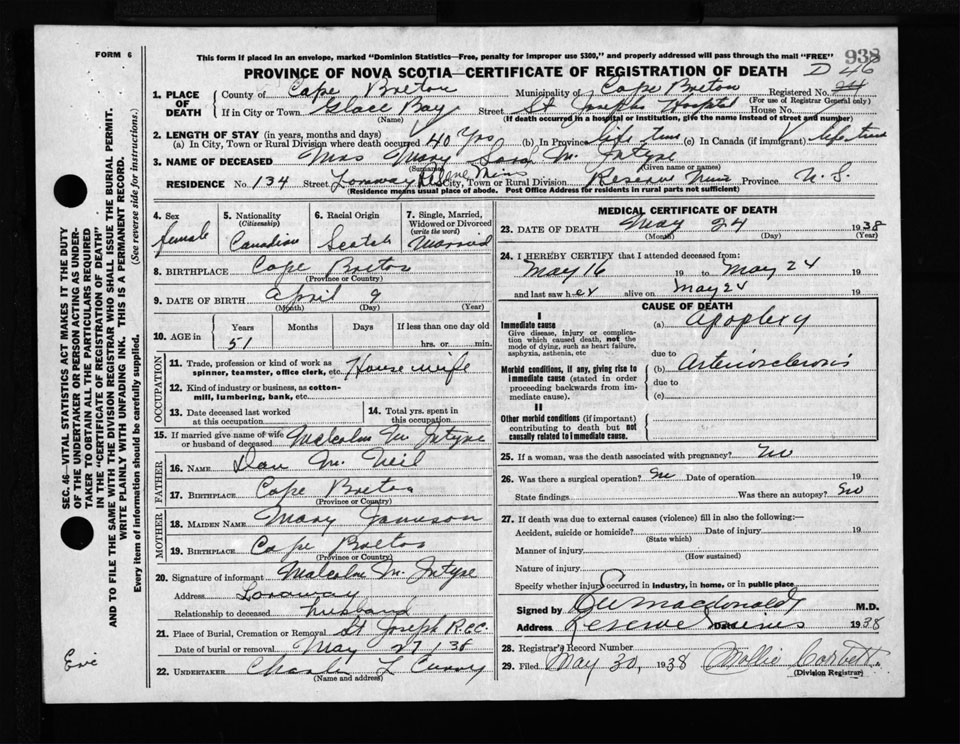 FORM 6
This form if placed in an envelope, marked "Dominion Statistics—Free, penalty for improper use $300," and properly addressed will pass through the mail "FREE"
938
PROVINCE OF NOVA SCOTIA—CERTIFICATE OF REGISTRATION OF DEATH
D 46
1. PLACE OF DEATH
County of Cape Breton Municipality of Cape Breton Registered No.
(For use of Registrar General only)
If in City or Town Glace Bay Street St Josephs Hospital House No.
(Name) (If death occurred in a hospital or institution, give the name instead of street and number)
2. LENGTH OF STAY (in years, months and days)
(a) In City, Town or Rural Division where death occurred 40 Yrs (b) In Province life time (c) In Canada (if immigrant) life time
3. NAME OF DECEASED Mrs Mary Sarah Mc Intyre
(Surname) (Given name or names)
RESIDENCE No. 134 Street Lorway Reserve Mines City, Town or Rural Division Reserve Mines Province N. S.
(Residence means usual place of abode. Post Office Address for residents in rural parts not sufficient)
4. Sex female
5. Nationality (Citizenship) Canadian
6. Racial Origin Scotch
7. Single, Married, Widowed or Divorced (write the word) Married
8. BIRTHPLACE Cape Breton
(Province or Country)
9. DATE OF BIRTH April 9
(Month) (Day) (Year)
10. AGE in Years Months Days If less than one day old
51 hrs. or min.
OCCUPATION
11. Trade, profession or kind of work as spinner, teamster, office clerk, etc. House wife
12. Kind of industry or business, as cotton-mill, lumbering, bank, etc.
13. Date deceased last worked at this occupation
14. Total yrs. spent in this occupation
15. If married give name of wife or husband of deceased Malcolm Mc Intyre
FATHER
16. NAME Dan Mc Neil
17. BIRTHPLACE Cape Breton
(Province or Country)
MOTHER
18. MAIDEN NAME Mary Jamieson
19. BIRTHPLACE Cape Breton
(Province or Country)
20. Signature of informant Malcolm Mc Intyre
Address Lorway
Relationship to deceased husband
21. Place of Burial, Cremation or Removal St Joseph R.C.C.
Date of burial or removal May 27 / 38
22. UNDERTAKER Charles L Curry
(Name and address)
MEDICAL CERTIFICATE OF DEATH
23. DATE OF DEATH May 24 1938
(Month) (Day) (Year)
24. I HEREBY CERTIFY that I attended deceased from:
May 16 19 to May 24 19
and last saw her alive on May 24 19
CAUSE OF DEATH
I
Immediate cause
Give disease, injury or complication which caused death, not the mode of dying, such as heart failure, asphyxia, asthenia, etc
(a) Apoplexy
due to
Morbid conditions, if any, giving rise to immediate cause (stated in order proceeding backwards from immediate cause).
(b) Arteriosclerosis
due to
(c)
II
Other morbid conditions (if important) contributing to death but not causally related to immediate cause.
25. If a woman, was the death associated with pregnancy? No
26. Was there a surgical operation? No Date of operation 19
State findings Was there an autopsy? No
27. If death was due to external causes (violence) fill in also the following:—
Accident, suicide or homicide? Date of injury 19
(State which)
Manner of injury
(How sustained)
Nature of injury
Specify whether injury occurred in industry, in home, or in public place
Signed by Macdonald M.D.
Address Reserve Mines Date 1938
28. Registrar's Record Number
29. Filed May 30, 1938 Mollie
(Division Registrar)
SEC. 46—VITAL STATISTICS ACT MAKES IT THE DUTY
OF THE UNDERTAKER OR PERSON ACTING AS UNDERTAKER TO OBTAIN ALL THE PARTICULARS REQUIRED
IN THE "CERTIFICATE OF REGISTRATION OF DEATH"
AND TO FILE THE SAME WITH THE DIVISION REGISTRAR WHO SHALL ISSUE THE BURIAL PERMIT.
WRITE PLAINLY WITH UNFADING INK. THIS IS A PERMANENT RECORD.
Every item of information should be carefully supplied. (See reverse side for instructions.)